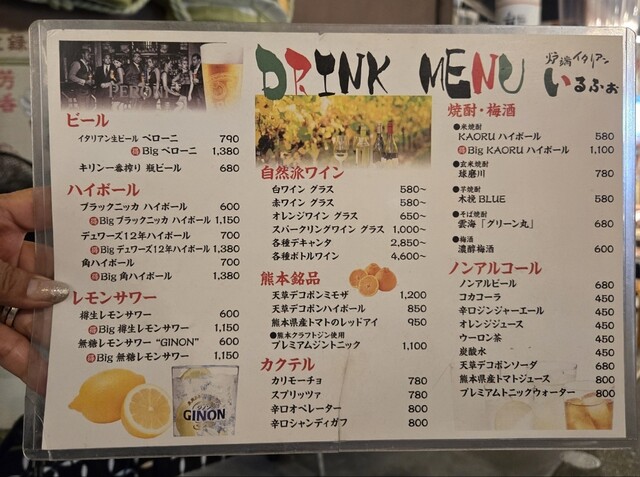 DRINK MENU
炉端イタリアン
いるふぉ
PERONI
ビール
イタリアン生ビール ペローニ 790
得Big ペローニ 1,380
キリン一番搾り 瓶ビール 680
ハイボール
ブラックニッカ ハイボール 600
得Big ブラックニッカ ハイボール 1,150
デュワーズ12年ハイボール 700
得Big デュワーズ12年ハイボール 1,380
角ハイボール 700
得Big 角ハイボール 1,380
レモンサワー
樽生レモンサワー 600
得Big 樽生レモンサワー 1,150
無糖レモンサワー “GINON” 600
得Big 無糖レモンサワー 1,150
GINON
自然派ワイン
白ワイン グラス 580~
赤ワイン グラス 580~
オレンジワイン グラス 650~
スパークリングワイン グラス 1,000~
各種デキャンタ 2,850~
各種ボトルワイン 4,600~
熊本銘品
天草デコポンミモザ 1,200
天草デコポンハイボール 850
熊本県産トマトのレッドアイ 950
●熊本クラフトジン使用
プレミアムジントニック 1,100
カクテル
カリモーチョ 780
スプリッツァ 780
辛口オペレーター 800
辛口シャンディガフ 800
焼酎・梅酒
●米焼酎
KAORU ハイボール 580
得Big KAORU ハイボール 1,100
●玄米焼酎
球磨川 780
●芋焼酎
木挽 BLUE 580
●そば焼酎
雲海「グリーン丸」 680
●梅酒
濃醇梅酒 600
ノンアルコール
ノンアルビール 680
コカコーラ 450
辛口ジンジャーエール 450
オレンジジュース 450
ウーロン茶 450
炭酸水 450
天草デコポンソーダ 680
熊本県産トマトジュース 800
プレミアムトニックウォーター 800